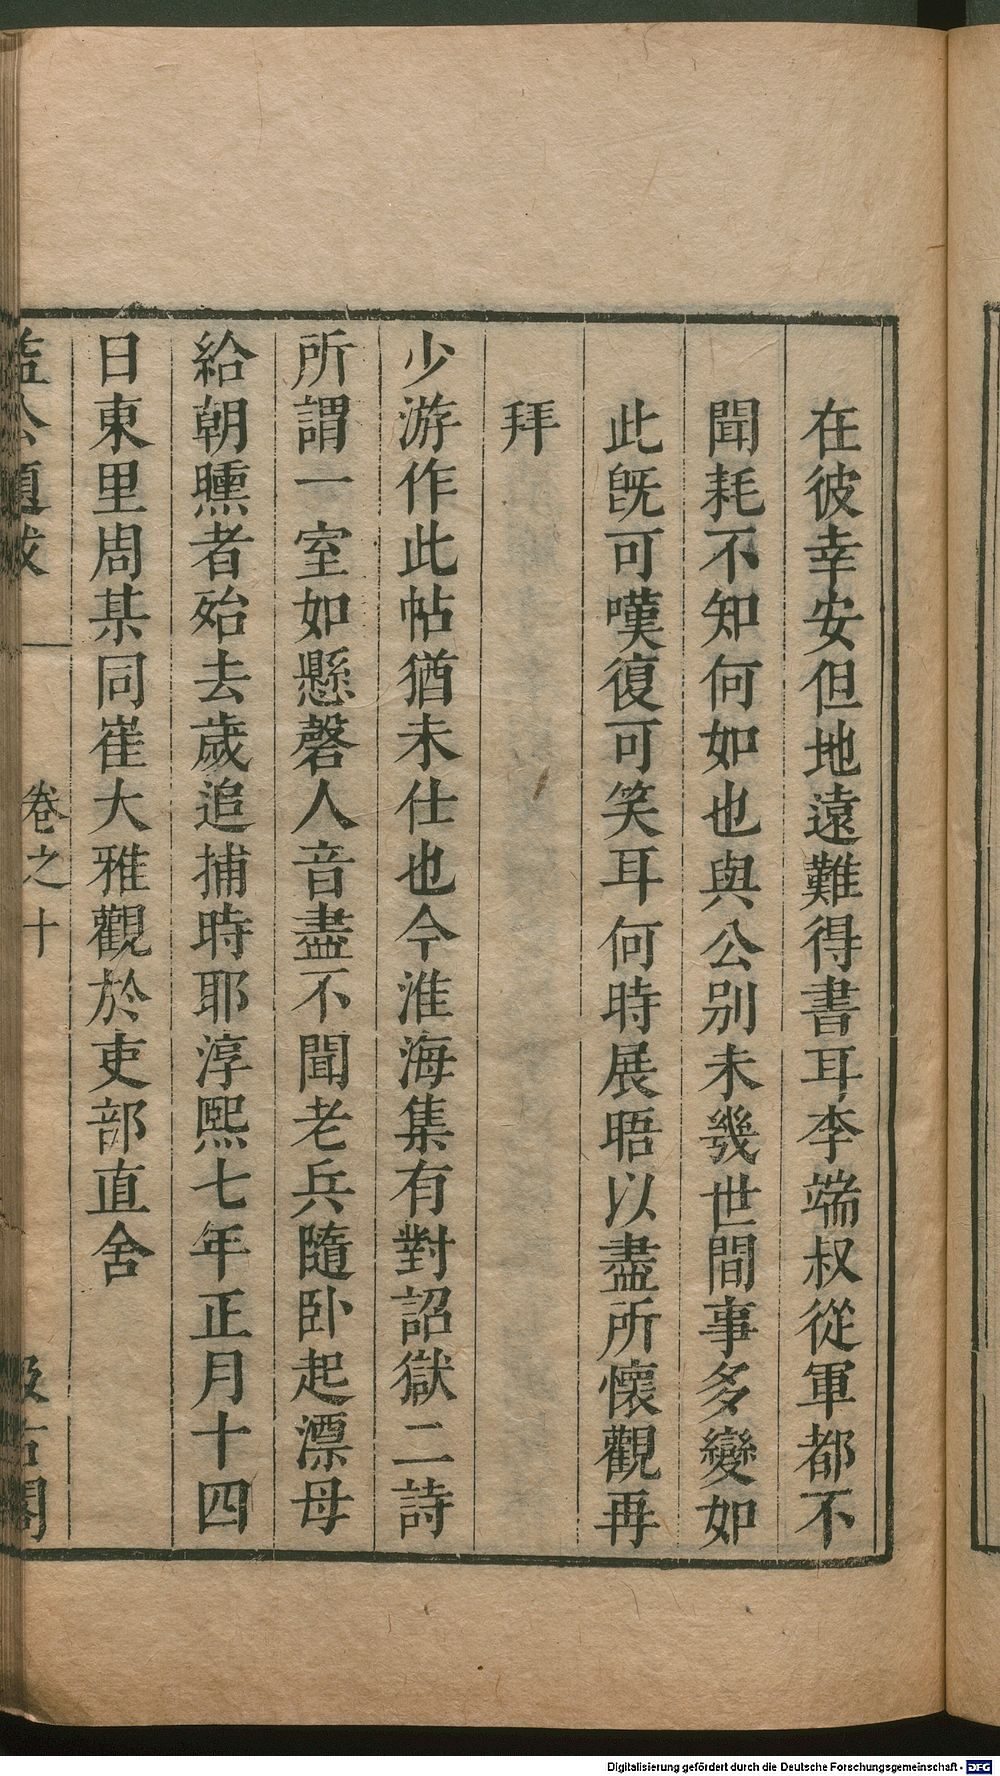 在彼幸安但地遠難得書耳李端叔從軍都不
聞耗不知何如也與公别未幾世間事多變如
此旣可嘆復可笑耳何時展晤以盡所懷觀再
拜
少游作此帖猶未仕也今淮海集有對詔獄二詩
所謂一室如懸磬人音盡不聞老兵隨卧起漂母
給朝曛者殆去歲追捕時耶淳熙七年正月十四
日東里周某同崔大雅觀於吏部直舍
益公題跋
卷之十
汲古閣
Digitalisierung gefördert durch die Deutsche Forschungsgemeinschaft - DFG